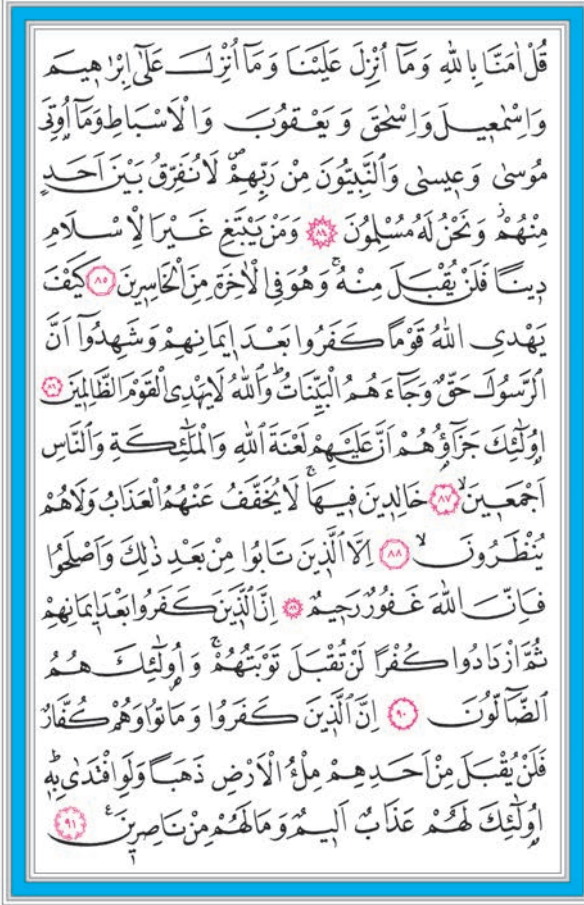 قُلْ اٰمَنَّا بِاللّٰهِ وَمَٓا اُنْزِلَ عَلَيْنَا وَمَٓا اُنْزِلَ عَلٰٓى اِبْرٰه۪يمَ
وَاِسْمٰع۪يلَ وَاِسْحٰقَ وَيَعْقُوبَ وَالْاَسْبَاطِ وَمَٓا اُو۫تِيَ
مُوسٰى وَع۪يسٰى وَالنَّبِيُّونَ مِنْ رَبِّهِمْۖ لَا نُفَرِّقُ بَيْنَ اَحَدٍ
مِنْهُمْۘ وَنَحْنُ لَهُ مُسْلِمُونَ ﴿٨٤﴾ وَمَنْ يَبْتَغِ غَيْرَ الْاِسْلَامِ
د۪ينًا فَلَنْ يُقْبَلَ مِنْهُۚ وَهُوَ فِي الْاٰخِرَةِ مِنَ الْخَاسِر۪ينَ ﴿٨٥﴾ كَيْفَ
يَهْدِي اللّٰهُ قَوْمًا كَفَرُوا بَعْدَ ا۪يمَانِهِمْ وَشَهِدُٓوا اَنَّ
الرَّسُولَ حَقٌّ وَجَٓاءَهُمُ الْبَيِّنَاتُۜ وَاللّٰهُ لَا يَهْدِي الْقَوْمَ الظَّالِم۪ينَ ﴿٨٦﴾
اُو۬لٰٓئِكَ جَزَٓاؤُ۬هُمْ اَنَّ عَلَيْهِمْ لَعْنَةَ اللّٰهِ وَالْمَلٰٓئِكَةِ وَالنَّاسِ
اَجْمَع۪ينَۙ ﴿٨٧﴾ خَالِد۪ينَ ف۪يهَاۚ لَا يُخَفَّفُ عَنْهُمُ الْعَذَابُ وَلَا هُمْ
يُنْظَرُونَۙ ﴿٨٨﴾ اِلَّا الَّذ۪ينَ تَابُوا مِنْ بَعْدِ ذٰلِكَ وَاَصْلَحُوا
فَاِنَّ اللّٰهَ غَفُورٌ رَح۪يمٌ ﴿٨٩﴾ اِنَّ الَّذ۪ينَ كَفَرُوا بَعْدَ ا۪يمَانِهِمْ
ثُمَّ ازْدَادُوا كُفْرًا لَنْ تُقْبَلَ تَوْبَتُهُمْۚ وَاُو۬لٰٓئِكَ هُمُ
الضَّٓالُّونَ ﴿٩٠﴾ اِنَّ الَّذ۪ينَ كَفَرُوا وَمَاتُوا وَهُمْ كُفَّارٌ
فَلَنْ يُقْبَلَ مِنْ اَحَدِهِمْ مِلْءُ الْاَرْضِ ذَهَبًا وَلَوِ افْتَدٰى بِه۪ۜ
اُو۬لٰٓئِكَ لَهُمْ عَذَابٌ اَل۪يمٌ وَمَا لَهُمْ مِنْ نَاصِر۪ينَ۟ ﴿٩١﴾